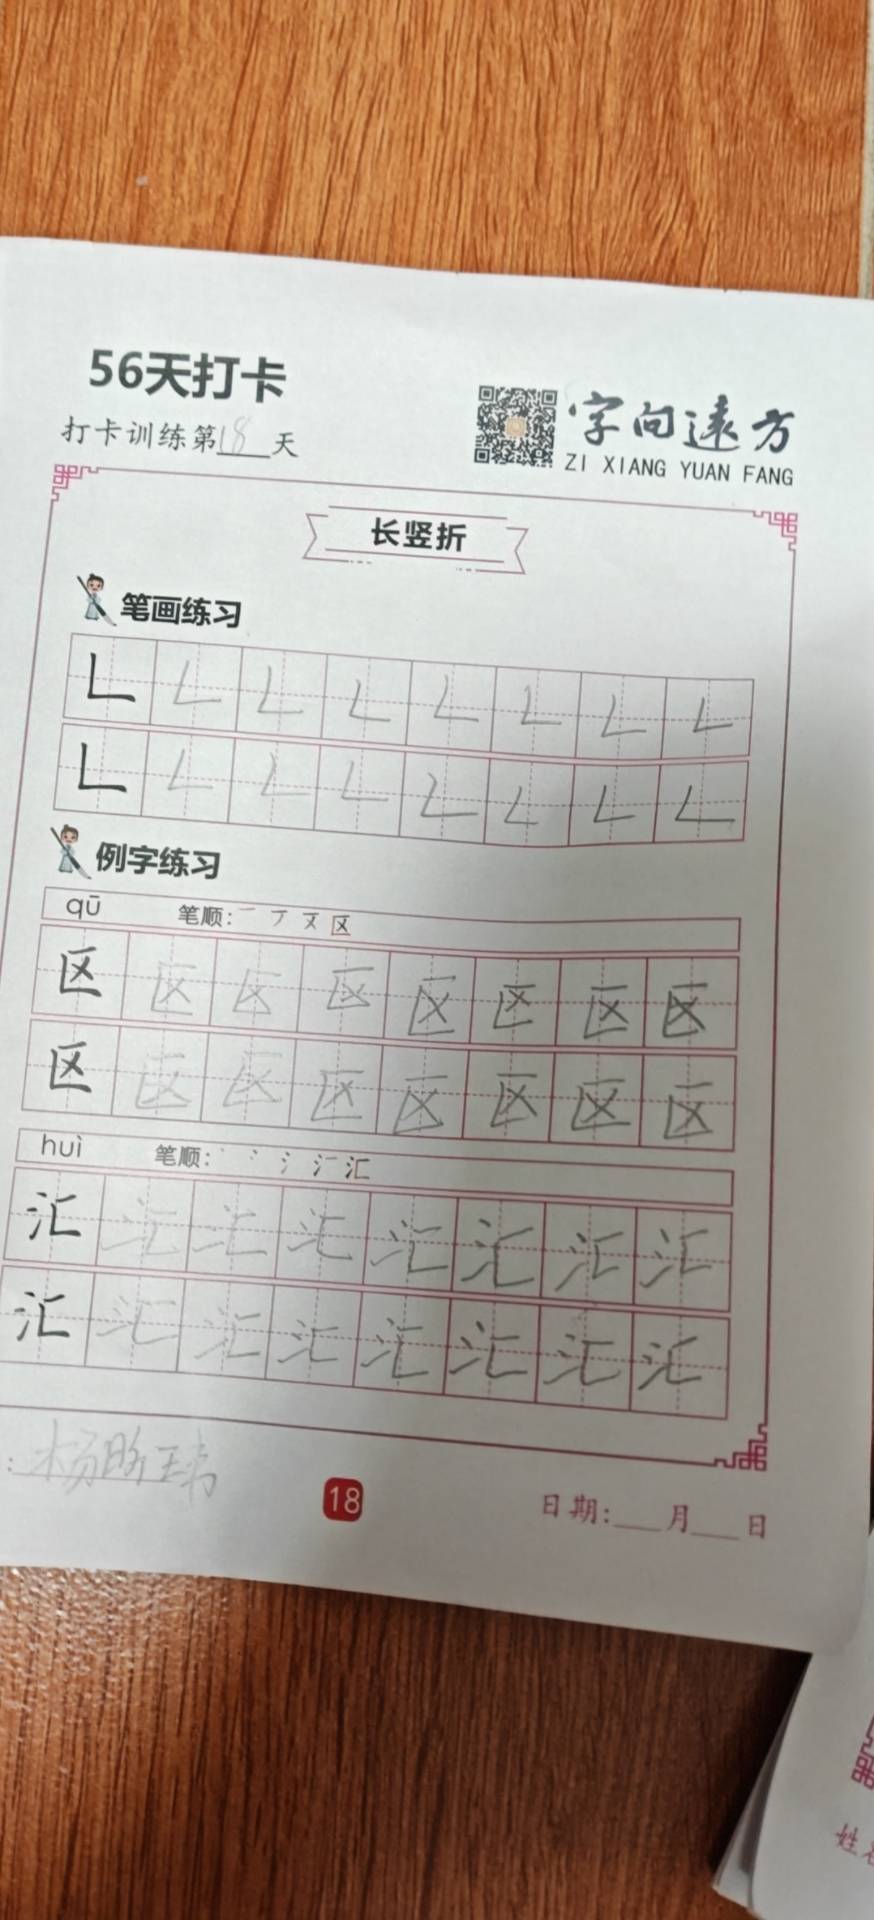 56天打卡
打卡训练第18天
字向远方
ZI XIANG YUAN FANG
长竖折
笔画练习
𠃊 𠃊 𠃊 𠃊 𠃊 𠃊 𠃊 𠃊
𠃊 𠃊 𠃊 𠃊 𠃊 𠃊 𠃊 𠃊
例字练习
qū 笔顺: 一 丆 区
区 区 区 区 区 区 区 区
区 区 区 区 区 区 区 区
huì 笔顺: 丶 冫 氵 汇
汇 汇 汇 汇 汇 汇 汇 汇
汇 汇 汇 汇 汇 汇 汇 汇
: 杨昕玮
18
日期:___月___日
姓